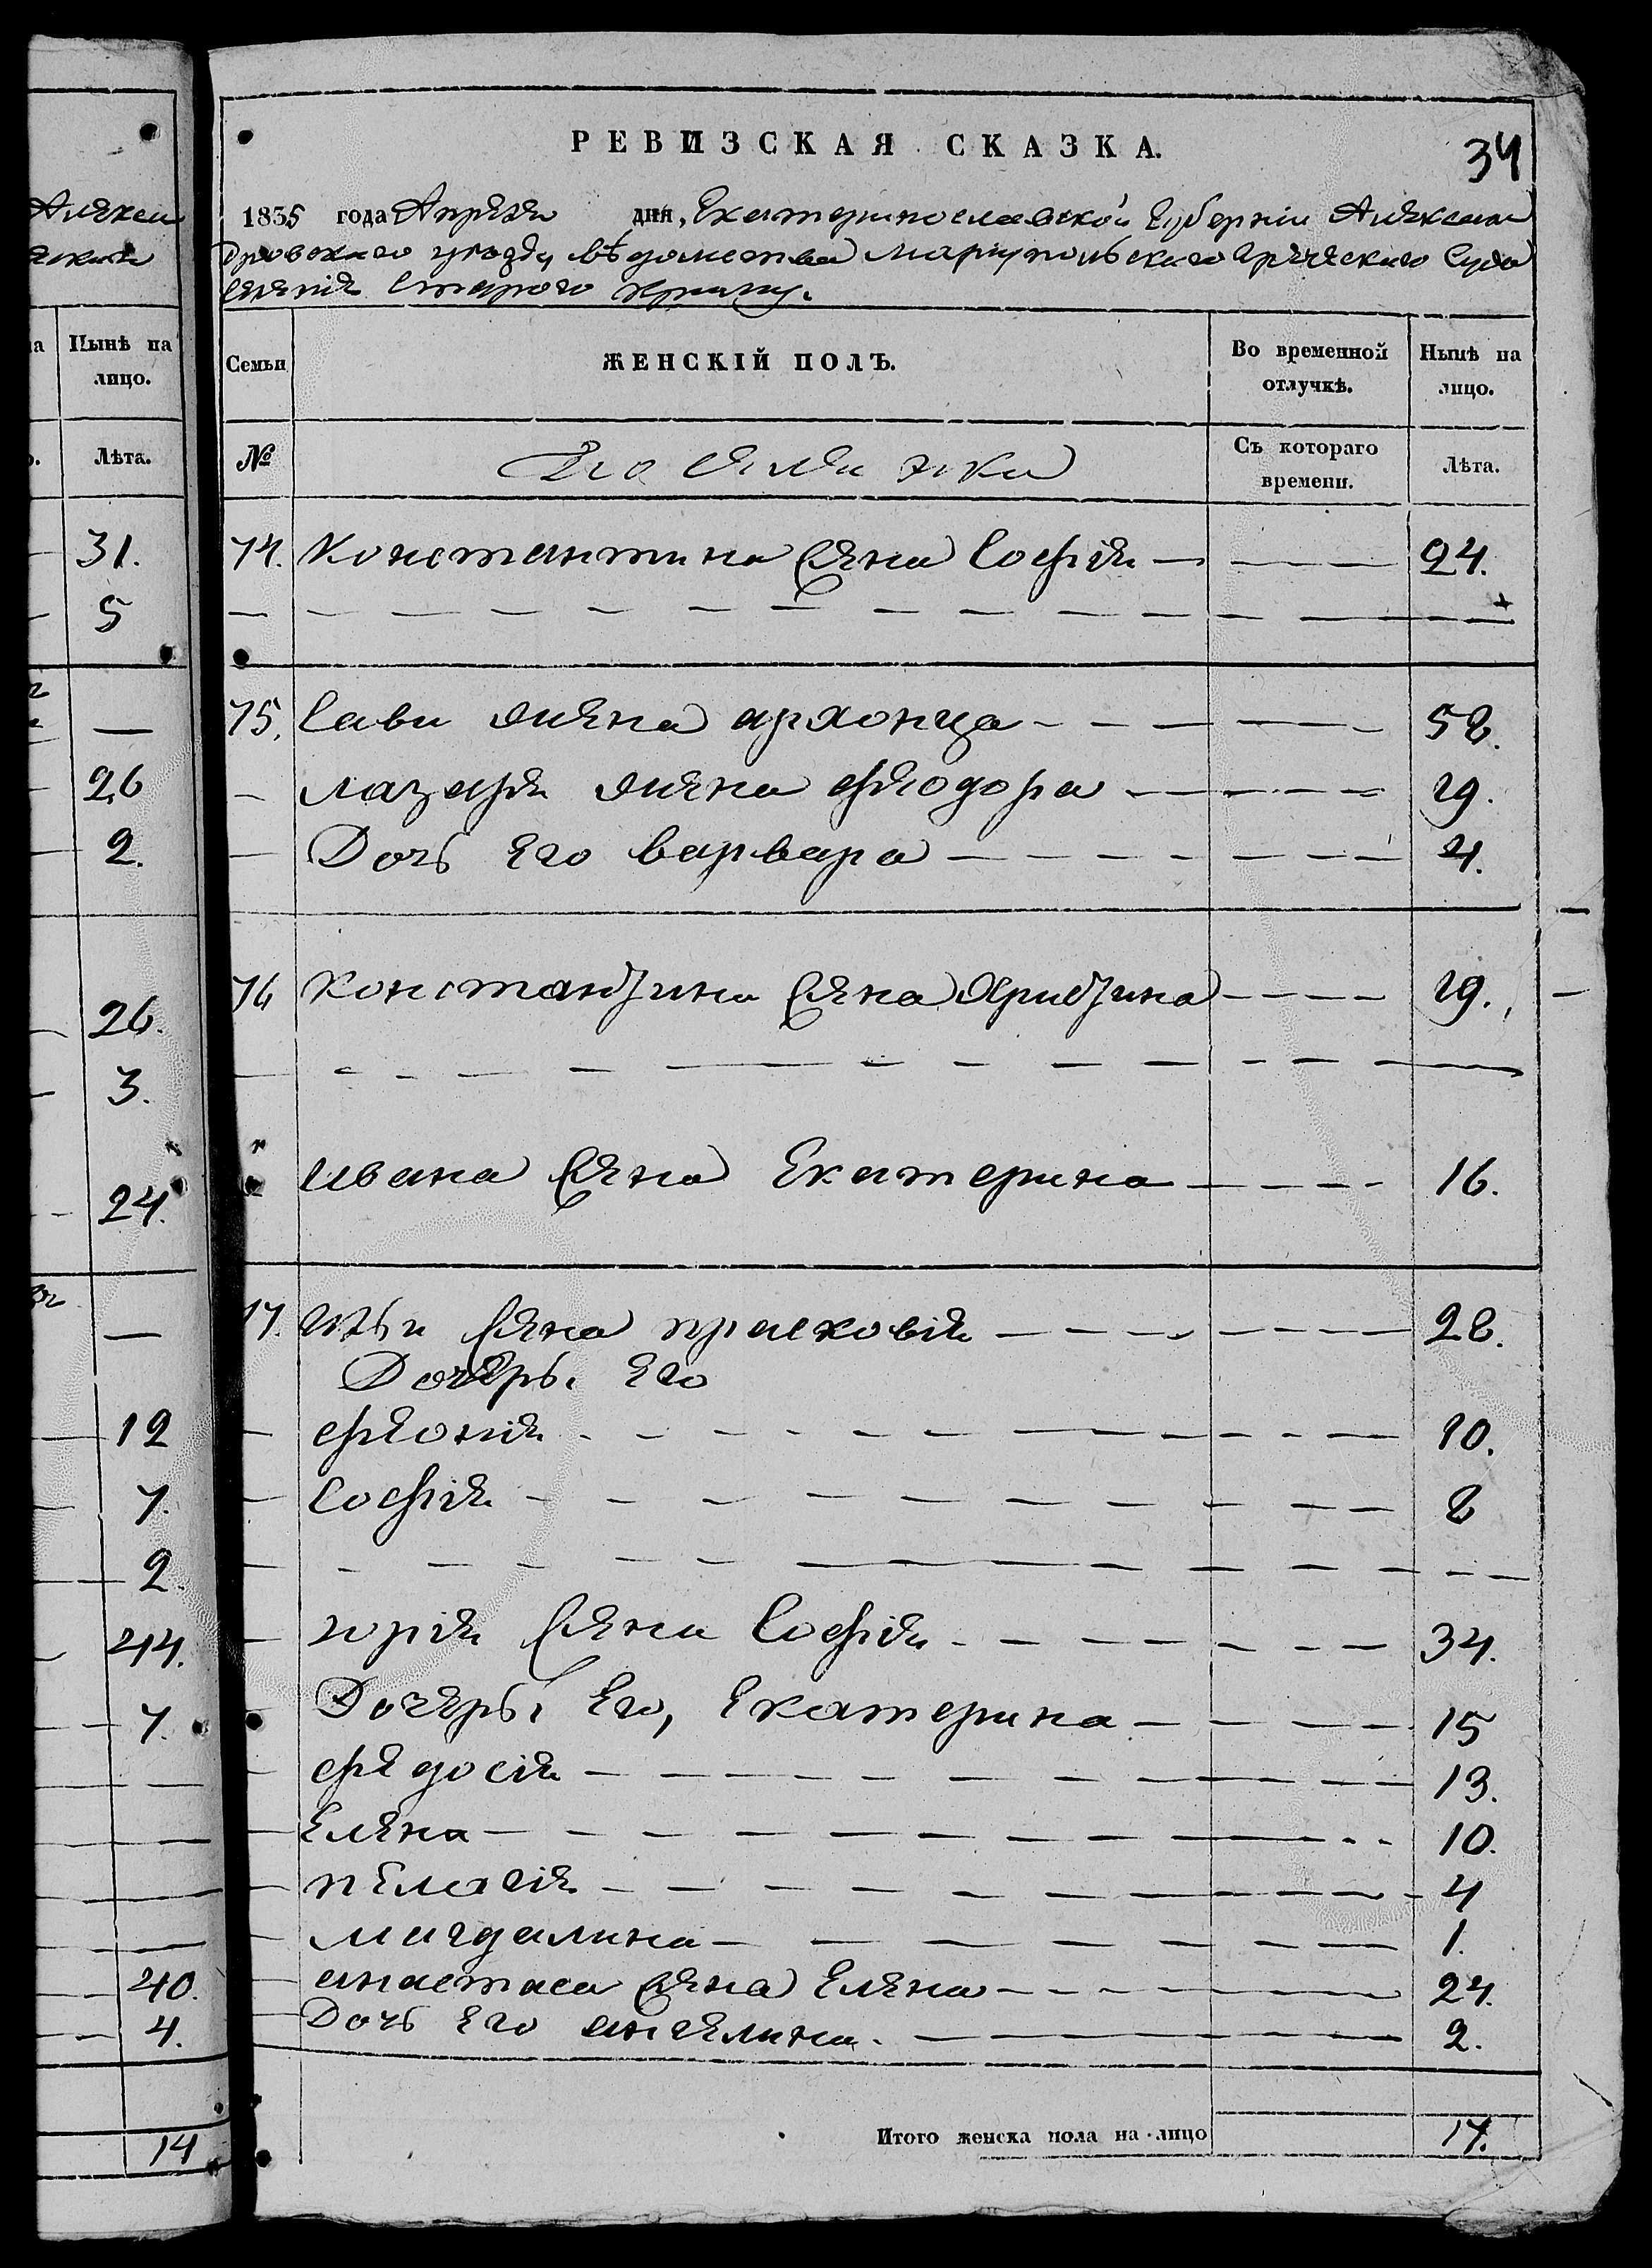 Алексан
31.
5
26
2.
26.
3.
24.
12
7.
2.
44.
7.
40.
4.
14
Нынѣ на
лицо.
Лѣта.
РЕВИЗСКАЯ СКАЗКА.
34
1835 года Апреля дня, Екатеринославской Губерніи Алексан
дровскаго уезда ведомства Мариупольскаго Греческаго Суда
селенія Старого Крыму.
Семьи
ЖЕНСКІЙ ПОЛЪ.
Во временной отлучкѣ.
Ныпѣ на лицо.
№
Съ котораго времени.
Лѣта.
74. Константина жена Софія — 24.
75. Сави жена архонца — 58.
Лазаря жена феодора — 29.
Дочь его варвара — 4.
76 Константина жена христина — 29.
ивана жена Екатерина — 16.
77. Ильи жена прасковія — 28.
Дочерьи Его
10.
Софія — 8
юрія жена Софія — 34.
Дочерьи Его, Екатерина — 15
федосія — 13.
Елена — 10.
пелагія — 4
магдалина — 1.
анастаса жена Елена — 24.
Дочь Его ангелина — 2.
Итого женска пола на лицо 17.